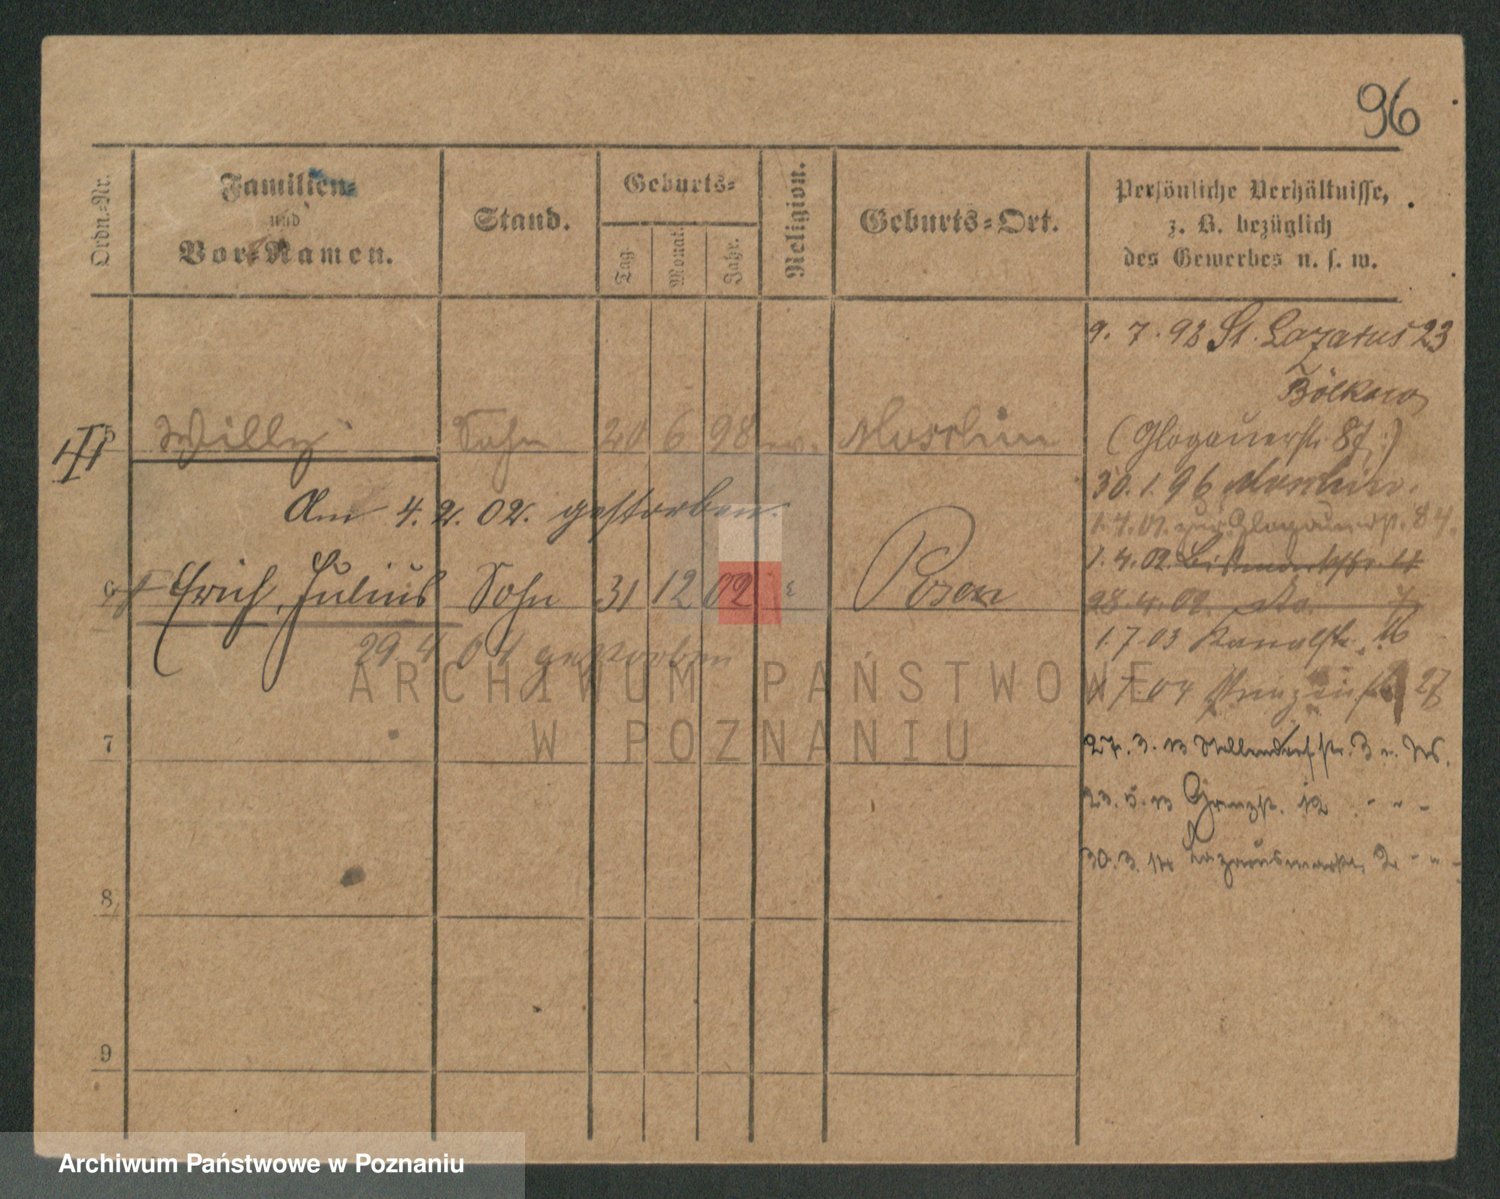 96
Ordn.-Nr.
Familien-
und
Vor-Namen.
Stand.
Geburts-
Tag
Monat.
Jahr.
Religion.
Geburts-Ort.
Persönliche Verhältnisse,
z. B. bezüglich
des Gewerbes u. s. w.
9. 7. 98 St. Lazarus 23
5 Willy Sohn 20 6 98 ev.
(Glogauerstr. 87.)
30. 1. 96
Am 4. 2. 02. gestorben.
1. 4. 02.
6 Erich, Julius Sohn 31 12 02 Posen
28. 4. 02. do. 7
1. 7 03 Kanalstr. 16
29 4 04 gestorben
7 04 27
ARCHIWUM PAŃSTWOWE
W POZNANIU
7
27. 3. 13 3
23. 5. 13 Grenzstr. 12 - " -
8
30. 3. 14 Lazarusmarkt 2 - " -
9
Archiwum Państwowe w Poznaniu